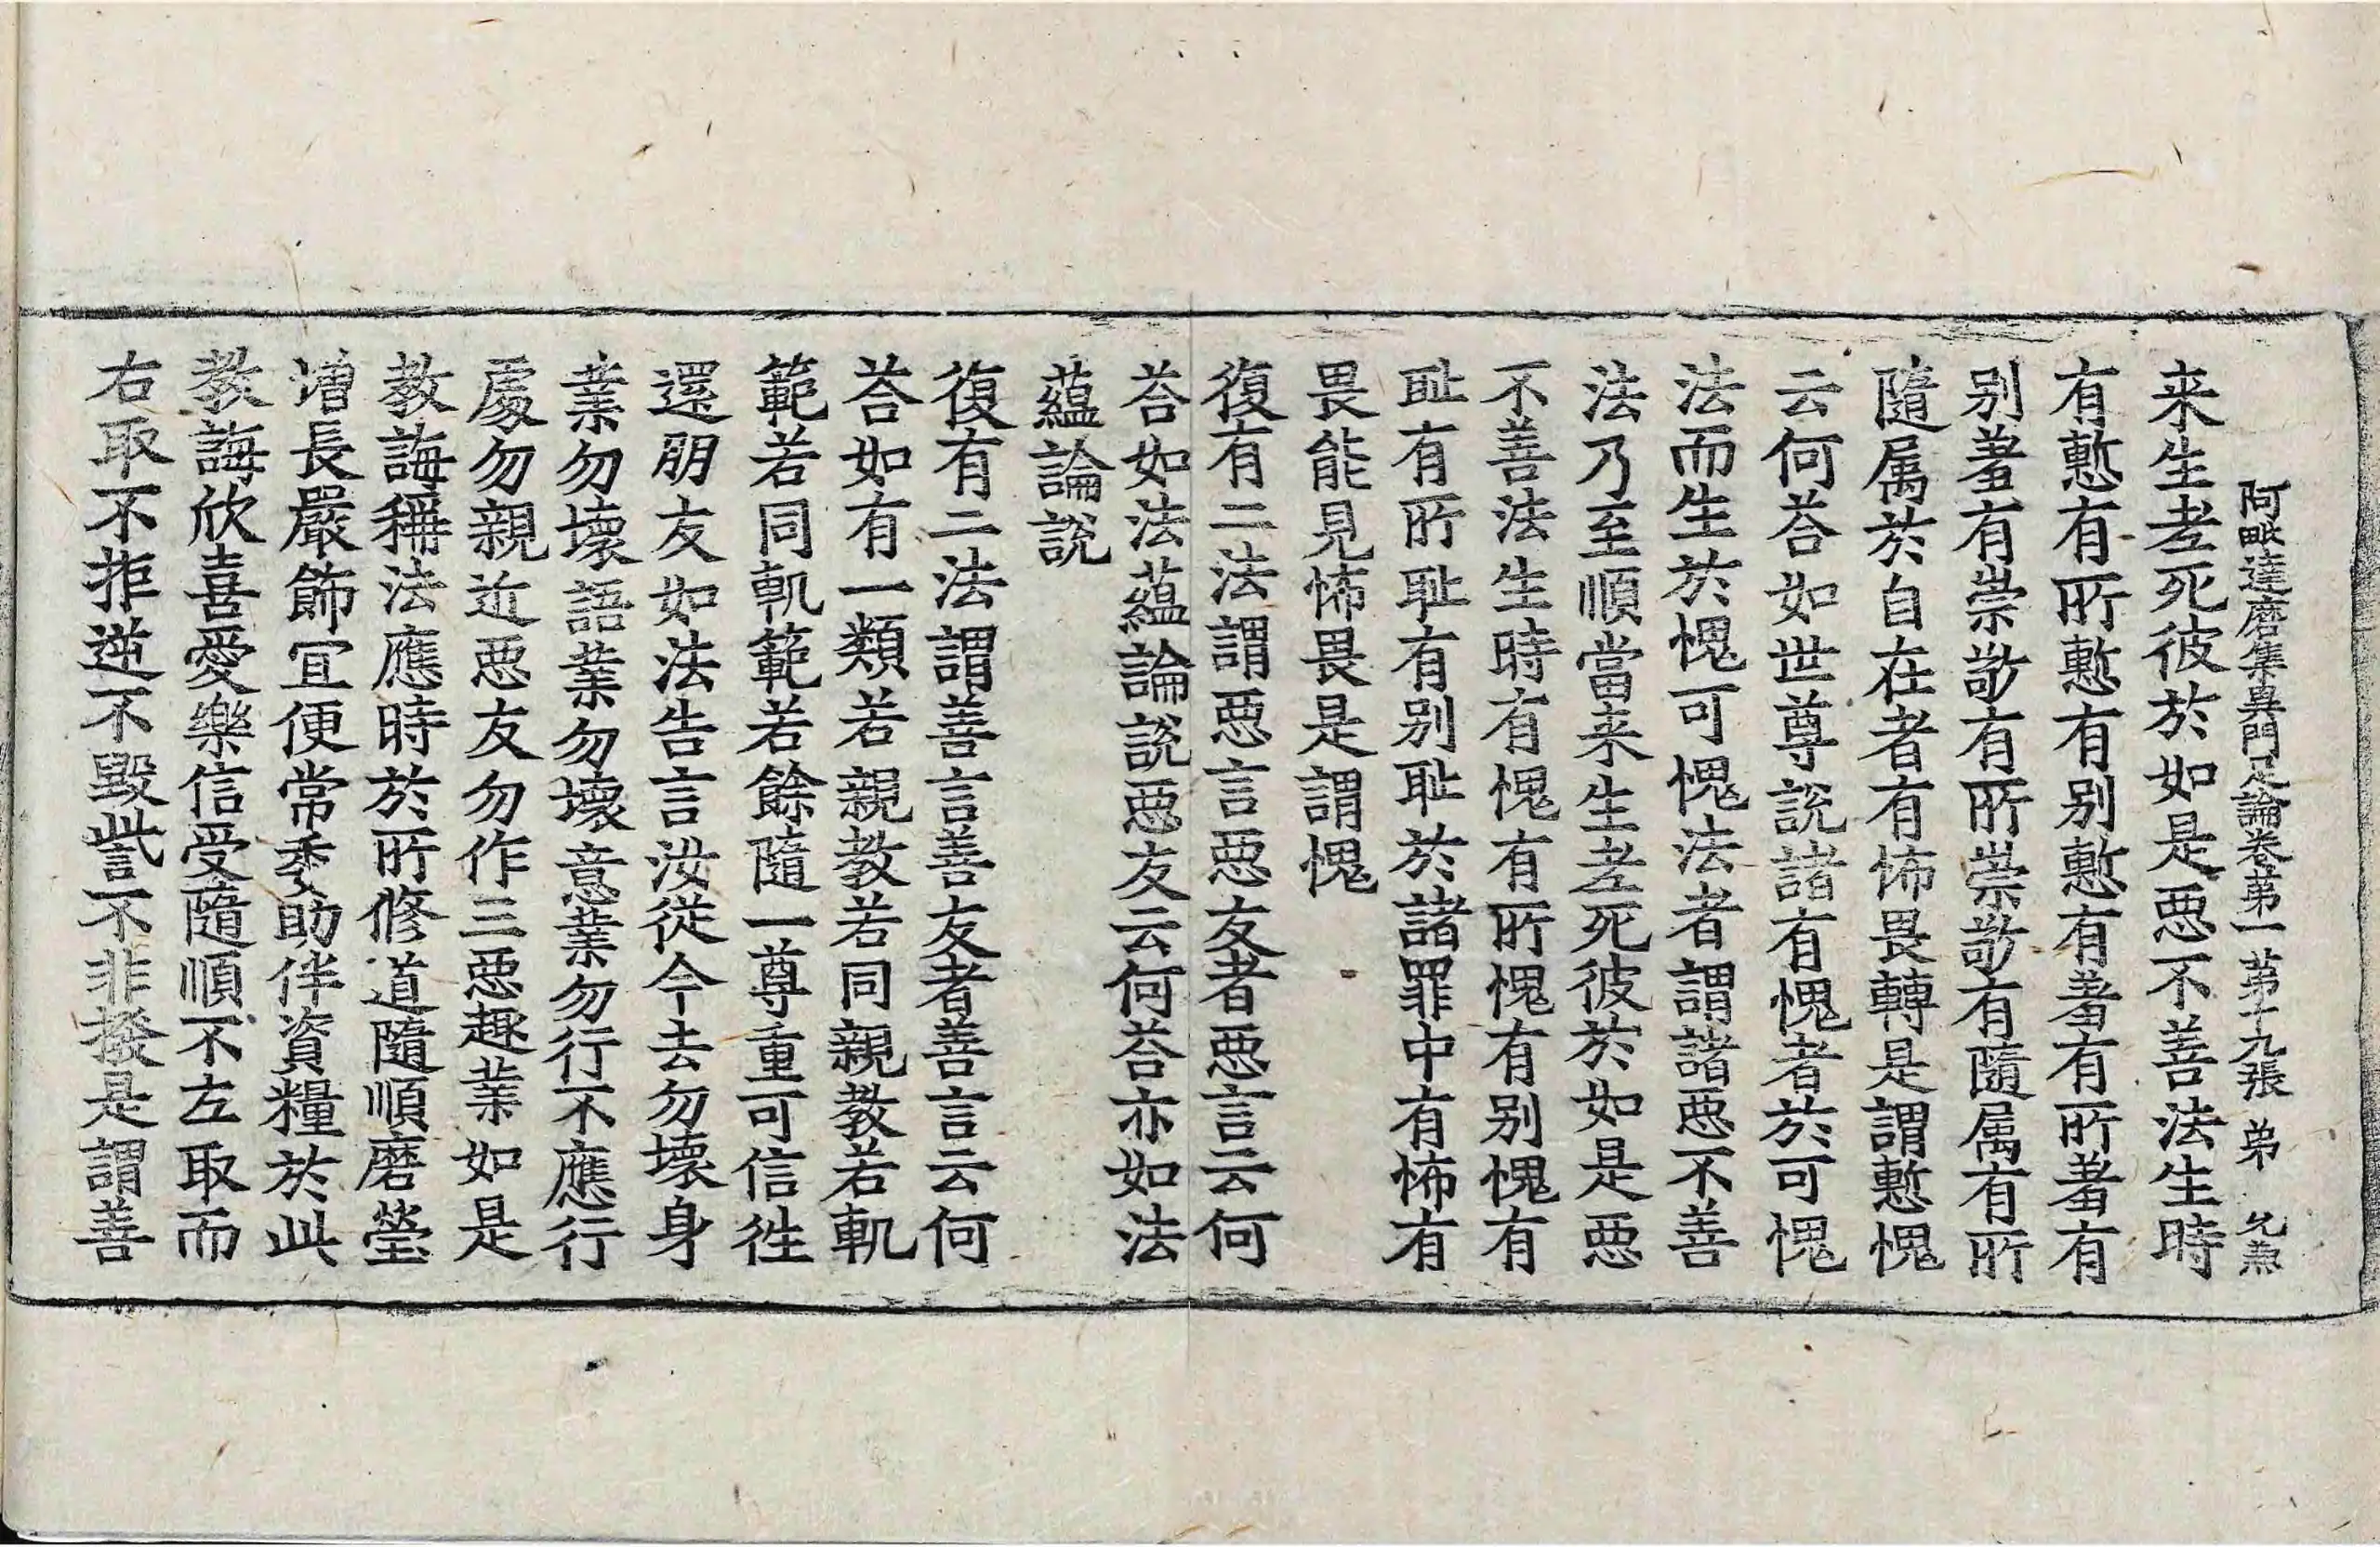 阿毗達磨集異門足論卷苐一 苐十九張 弟
来生老死彼於如是惡不善法生時
有慙有所慙有别慙有羞有所羞有
别羞有崇敬有所崇敬有隨属有所
隨属於自在者有怖畏轉是謂慙愧
云何荅如世尊説諸有愧者於可愧
法而生於愧可愧法者謂諸惡不善
法乃至順當来生老死彼於如是惡
不善法生時有愧有所愧有别愧有
耻有所耻有别耻於諸罪中有怖有
畏能見怖畏是謂愧
復有二法謂惡言惡友者惡言云何
荅如法蘊論説惡友云何荅亦如法
蘊論説
復有二法謂善言善友者善言云何
荅如有一類若親教若同親教若軌
範若同軌範若餘隨一尊重可信徃
還朋友如法告言汝從今去勿壞身
業勿壞語業勿壞意業勿行不應行
處勿親近惡友勿作三惡趣業如是
教誨稱法應時於所修道隨順磨瑩
增長嚴飾冝便常委助伴資糧於此
教誨欣喜愛樂信受隨順不左取而
右取不拒逆不毁訾不非撥是謂善